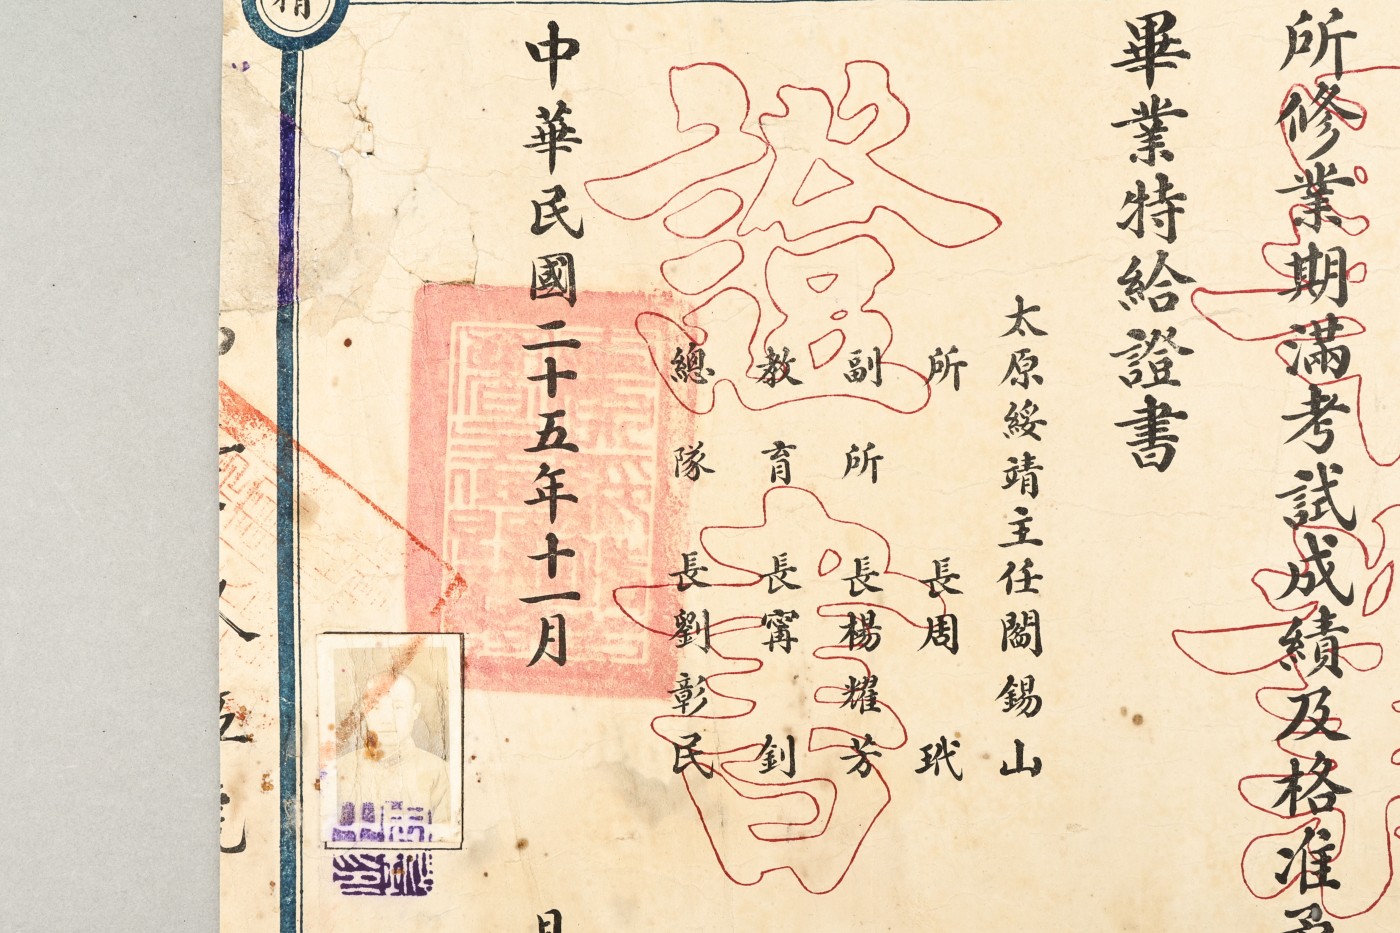 所修業期滿考試成績及格准予
畢業特給證書
太原綏靖主任閻錫山
所長周玳
副所長楊耀芳
教育長甯釗
總隊長劉彰民
證書
中華民國二十五年十一月
日